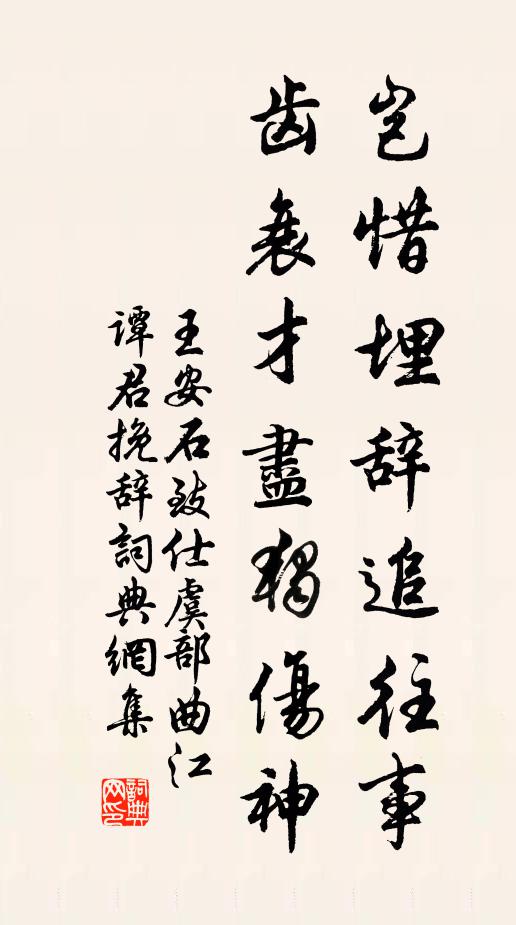 岂惜埋辞追往事
齿衰才盡獨傷神
王安石致仕虞部曲江
谭君挽辞詞典網集
詞典
网印